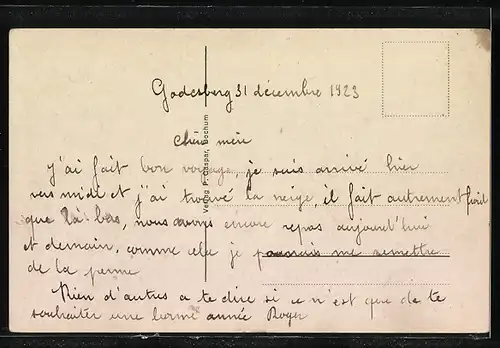 Godesberg 31 décembre 1923
Chère mère
J'ai fait bon voyage, je suis arrivé hier
vers midi et j'ai trouvé la neige, il fait autrement froid
que là bas, nous avons encore repos aujourd'hui
et demain, comme cela je pourrais me remettre
de la
Rien d'autres a te dire si ce n'est que de te
souhaiter une bonne année Roger
Verlag P. Caspar, Bochum